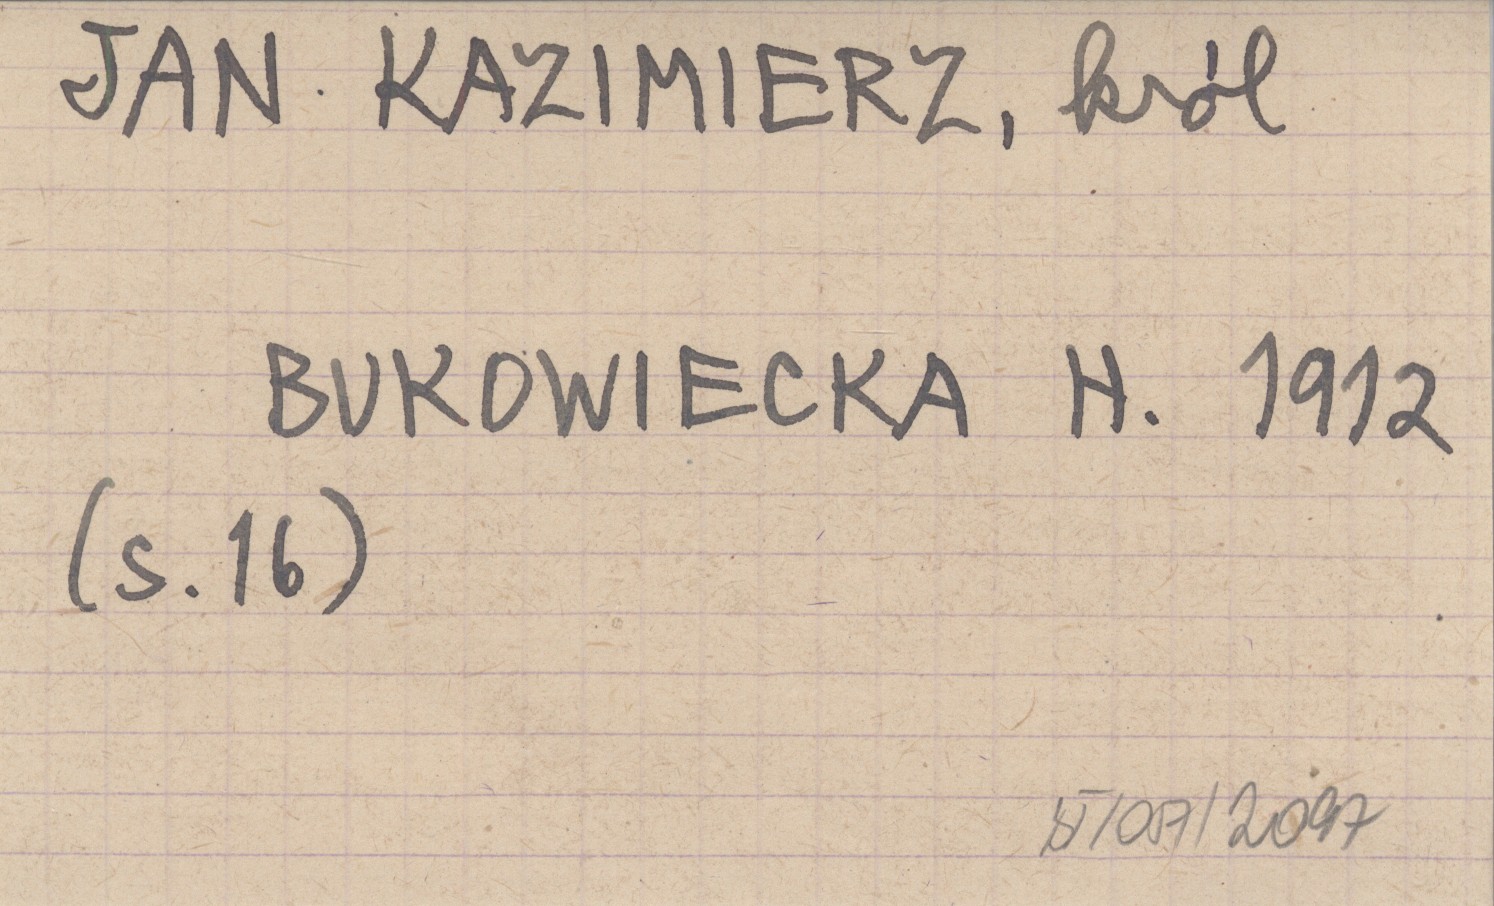 JAN KAZIMIERZ, król
BUKOWIECKA H. 1912
(s.16)
/2097